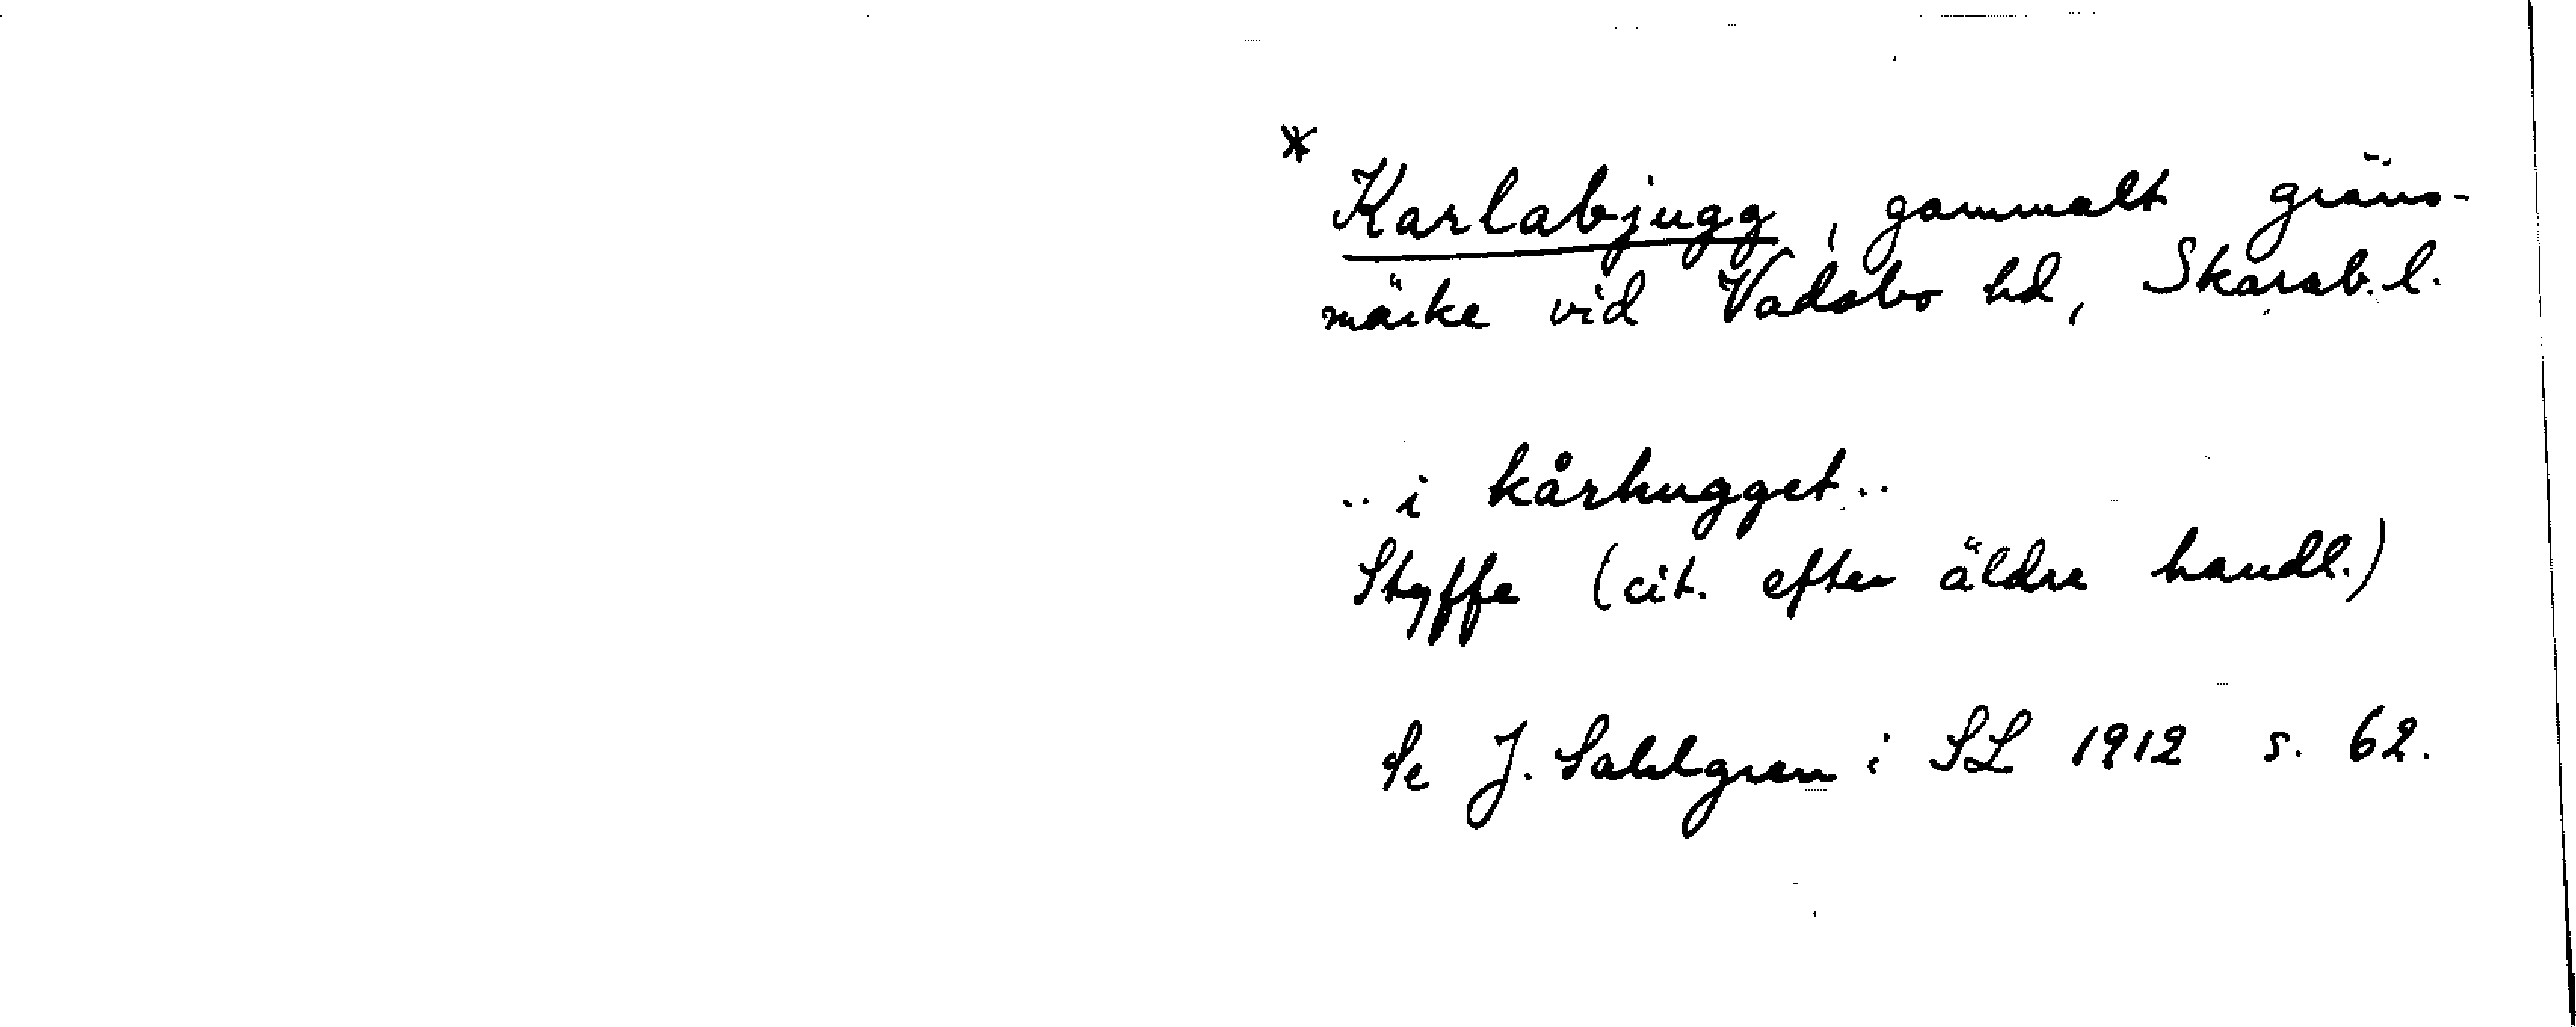 *
Karlabjugg, gammalt gräns-
märke vid Vadsbo hd, Skarab. l.
.. i kårhugget ..
Styffe (cit. efter äldre handl.)
Se J. Sahlgren i SL 1912 s. 62.